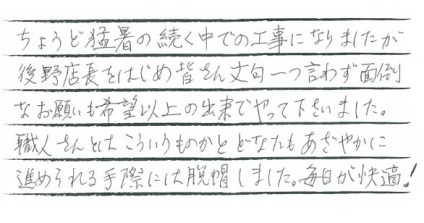 ちょうど猛暑の続く中での工事になりましたが
後野店長をはじめ皆さん文句一つ言わず面倒
なお願いも希望以上の出来でやって下さいました。
職人さんとはこういうものかとどなたもあざやかに
進められる手際には脱帽しました。毎日が快適!